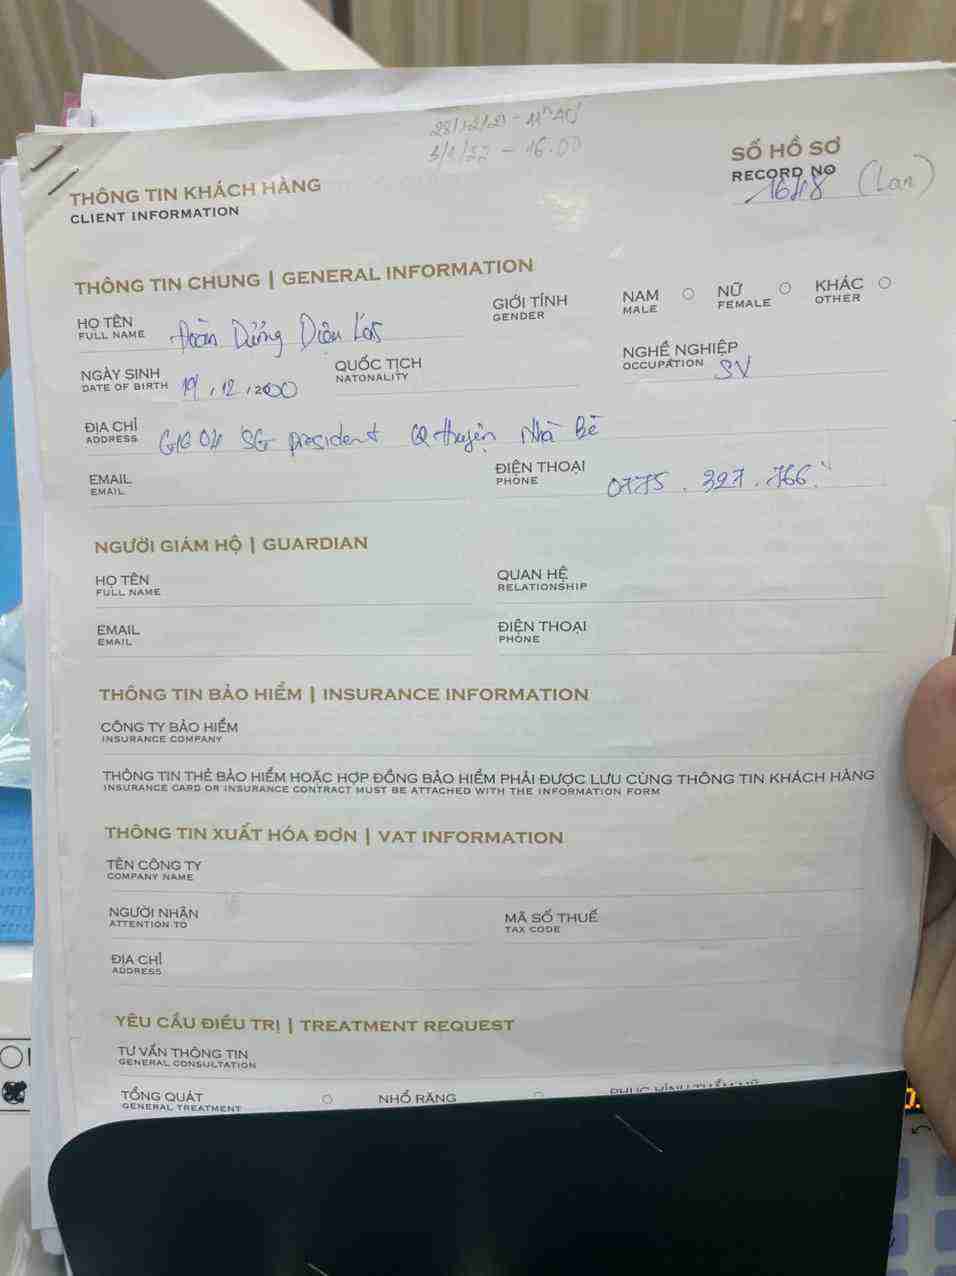 28/12/21 - 11h
3/1/22 - 16.00
THÔNG TIN KHÁCH HÀNG
CLIENT INFORMATION
SỐ HỒ SƠ
RECORD NO
1648 (Lan)
THÔNG TIN CHUNG | GENERAL INFORMATION
HỌ TÊN
FULL NAME
Đoàn Diệu
GIỚI TÍNH
GENDER
NAM
MALE
NỮ
FEMALE
KHÁC
OTHER
NGÀY SINH
DATE OF BIRTH
19/.12.2000
QUỐC TỊCH
NATONALITY
NGHỀ NGHIỆP
OCCUPATION
SV
ĐỊA CHỈ
ADDRESS
SG president huyện Nhà Bè
EMAIL
EMAIL
ĐIỆN THOẠI
PHONE
0775.327.766
NGƯỜI GIÁM HỘ | GUARDIAN
HỌ TÊN
FULL NAME
QUAN HỆ
RELATIONSHIP
EMAIL
EMAIL
ĐIỆN THOẠI
PHONE
THÔNG TIN BẢO HIỂM | INSURANCE INFORMATION
CÔNG TY BẢO HIỂM
INSURANCE COMPANY
THÔNG TIN THẺ BẢO HIỂM HOẶC HỢP ĐỒNG BẢO HIỂM PHẢI ĐƯỢC LƯU CÙNG THÔNG TIN KHÁCH HÀNG
INSURANCE CARD OR INSURANCE CONTRACT MUST BE ATTACHED WITH THE INFORMATION FORM
THÔNG TIN XUẤT HÓA ĐƠN | VAT INFORMATION
TÊN CÔNG TY
COMPANY NAME
NGƯỜI NHẬN
ATTENTION TO
MÃ SỐ THUẾ
TAX CODE
ĐỊA CHỈ
ADDRESS
YÊU CẦU ĐIỀU TRỊ | TREATMENT REQUEST
TƯ VẤN THÔNG TIN
GENERAL CONSULTATION
TỔNG QUÁT
GENERAL TREATMENT
NHỔ RĂNG